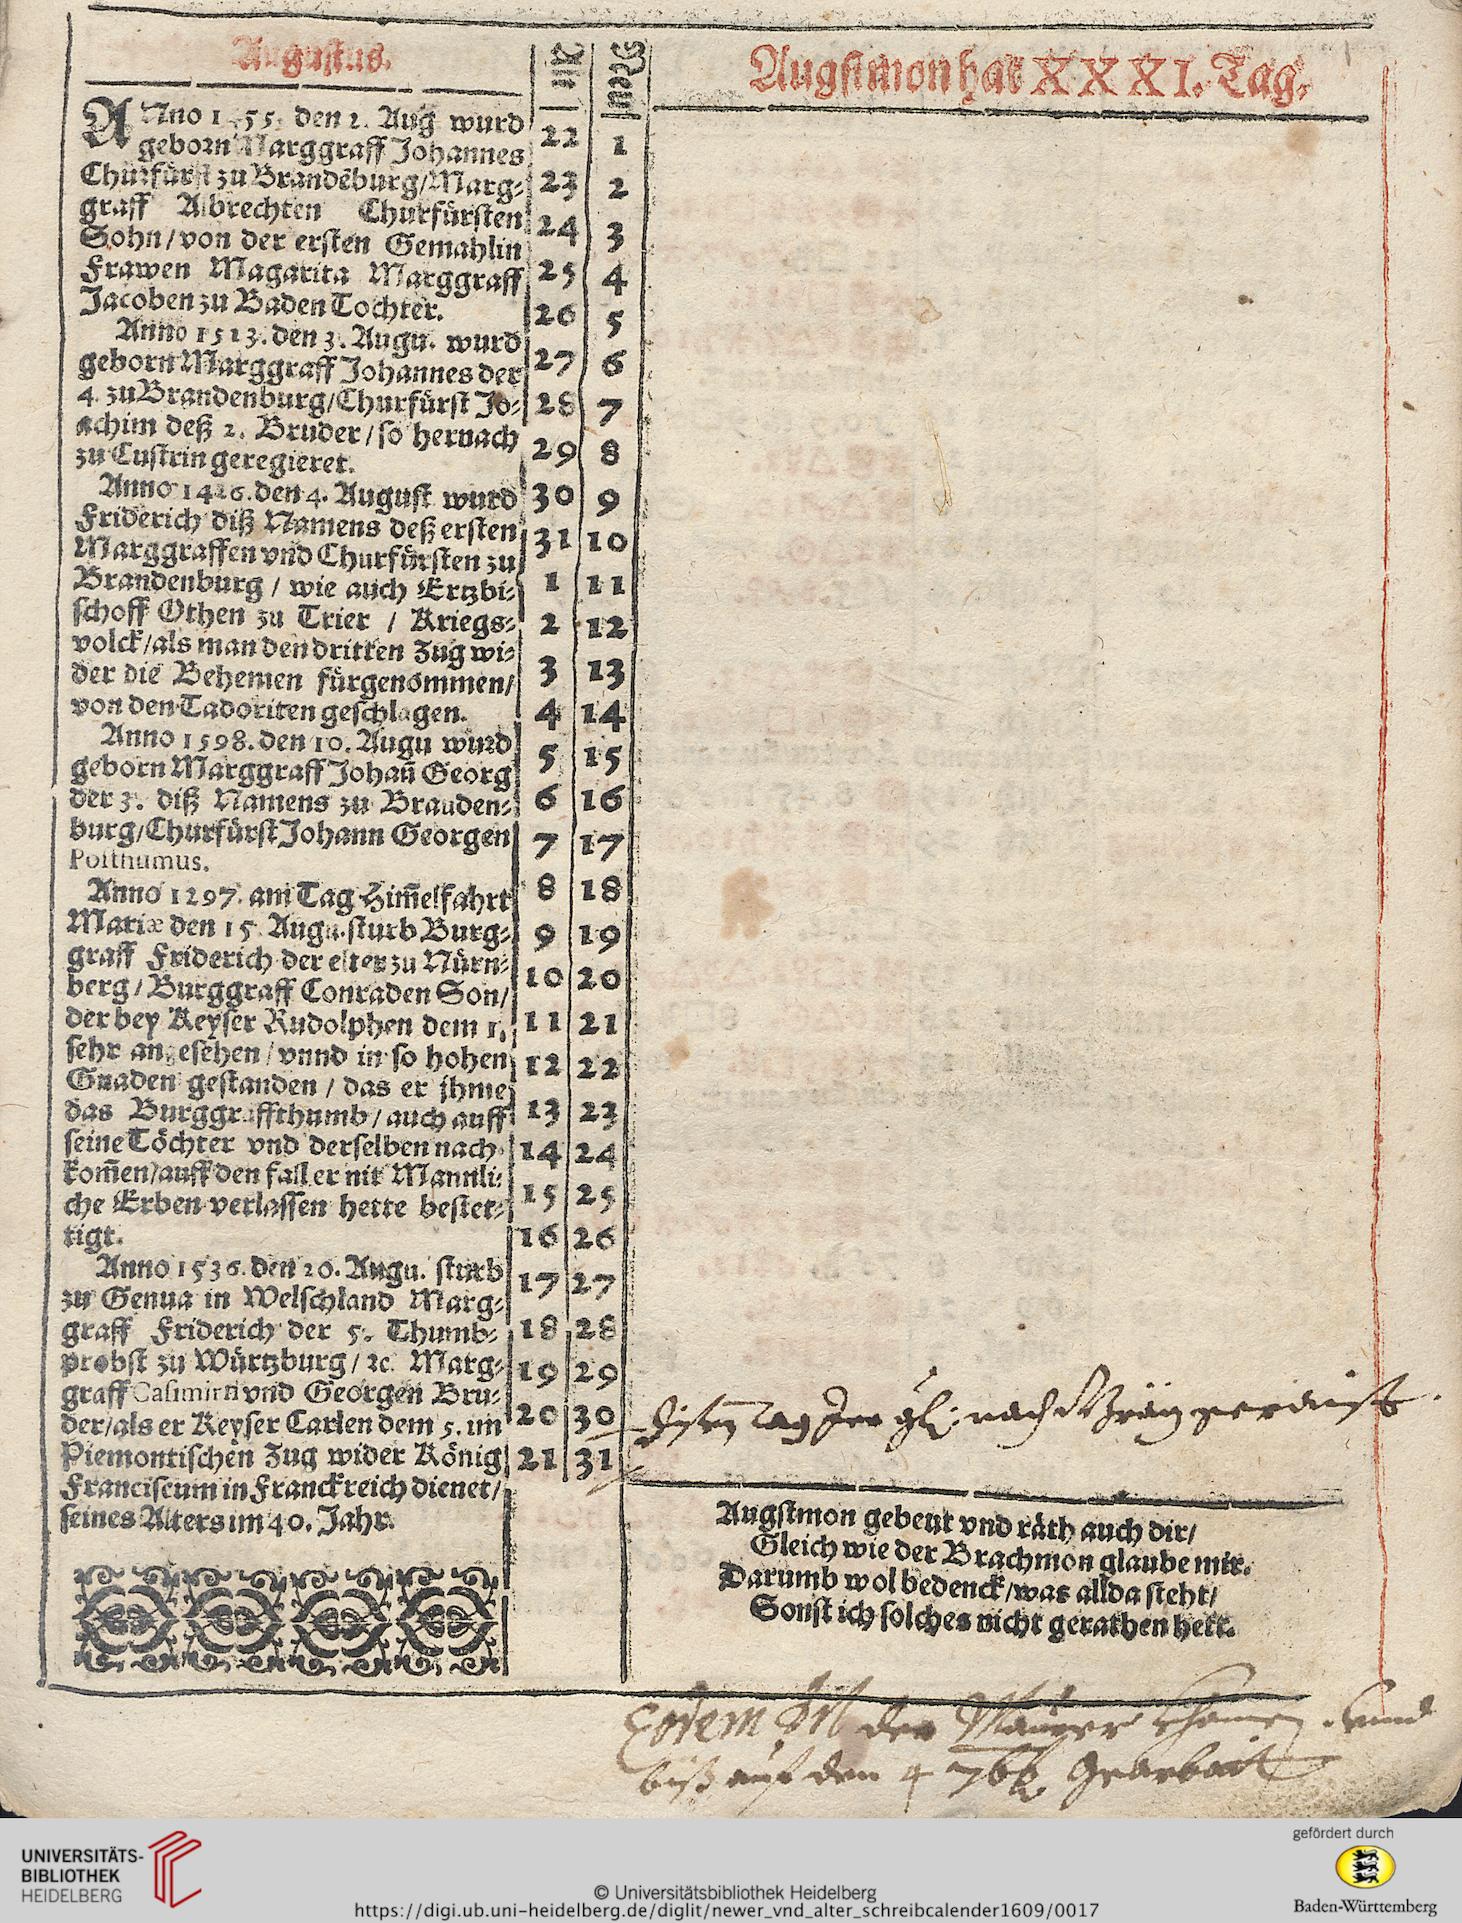 Augustus.
Alt
New
Augstmon hat XXXI. Tag.
ANno 1455. den 2. Aug wurd
geborn Marggraff Johannes
Churfürst zu Brandēburg/Marg-
graff Albrechten Churfürsten
Sohn/von der ersten Gemahlin
Frawen Magarita Marggraff
Jacoben zu Baden Tochter.
Anno 1513. den 3. Augu. wurd
geborn Marggraff Johannes der
4. zu Brandenburg/Churfürst Jo-
achim deß 2. Bruder/so hernach
zu Custrin geregieret.
Anno 1426. den 4. August wurd
Friderich diß Namens deß ersten
Marggraffen vnd Churfürsten zu
Brandenburg/ wie auch Ertzbi-
schoff Othen zu Trier / Kriegs-
volck/als man den dritten Zug wi-
der die Behemen fürgenommen/
von den Taboriten geschlagen.
Anno 1598. den 10. Augu wurd
geborn Marggraff Johañ Georg
der 3. diß Namens zu Branden-
burg/Churfürst Johann Georgen
Posthumus.
Anno 1297. am Tag Him̃elfahrt
Mariæ den 15. Augu. sturb Burg-
graff Friderich der elter zu Nürn-
berg/Burggraff Conraden Son/
der bey Keyser Rudolphen dem 1.
sehr angesehen/vnnd in so hohen
Gnaden gestanden / das er jhme
das Burggraffthumb/auch auff
seine Töchter vnd derselben nach
kom̃en/auff den fall er nit Mannli-
che Erben verlassen hette bestet-
tigt.
Anno 1536. den 20. Augu. sturb
zu Genua in Welschland Marg-
graff Friderich der 5. Thumb-
probst zu Würtzburg/ ꝛc. Marg-
graff Casimirn vnd Georgen Bru-
der/als er Keyser Carlen dem 5. im
Piemontischen Zug wider König
Franciscum in Franckreich dienet/
seines Alters im 40. Jahr.
22 1
23 2
24 3
25 4
26 5
27 6
28 7
29 8
30 9
31 10
1 11
2 12
3 13
4 14
5 15
6 16
7 17
8 18
9 19
10 20
11 21
12 22
13 23
14 24
15 25
16 26
17 27
18 28
19 29
20 30
21 31
disen tag nach
Augstmon gebeut vnd räth auch dir/
Gleich wie der Brachmon glaube mir.
Darumb wol bedenck/was allda steht/
Sonst ich solches nicht gerathen hett.
Eodem ist der Maurer khomen. vnnd
biß auf den 4 7b gearbait
UNIVERSITÄTS-
BIBLIOTHEK
HEIDELBERG
© Universitätsbibliothek Heidelberg
https://digi.ub.uni-heidelberg.de/diglit/newer_vnd_alter_schreibcalender1609/0017
gefördert durch
Baden-Württemberg